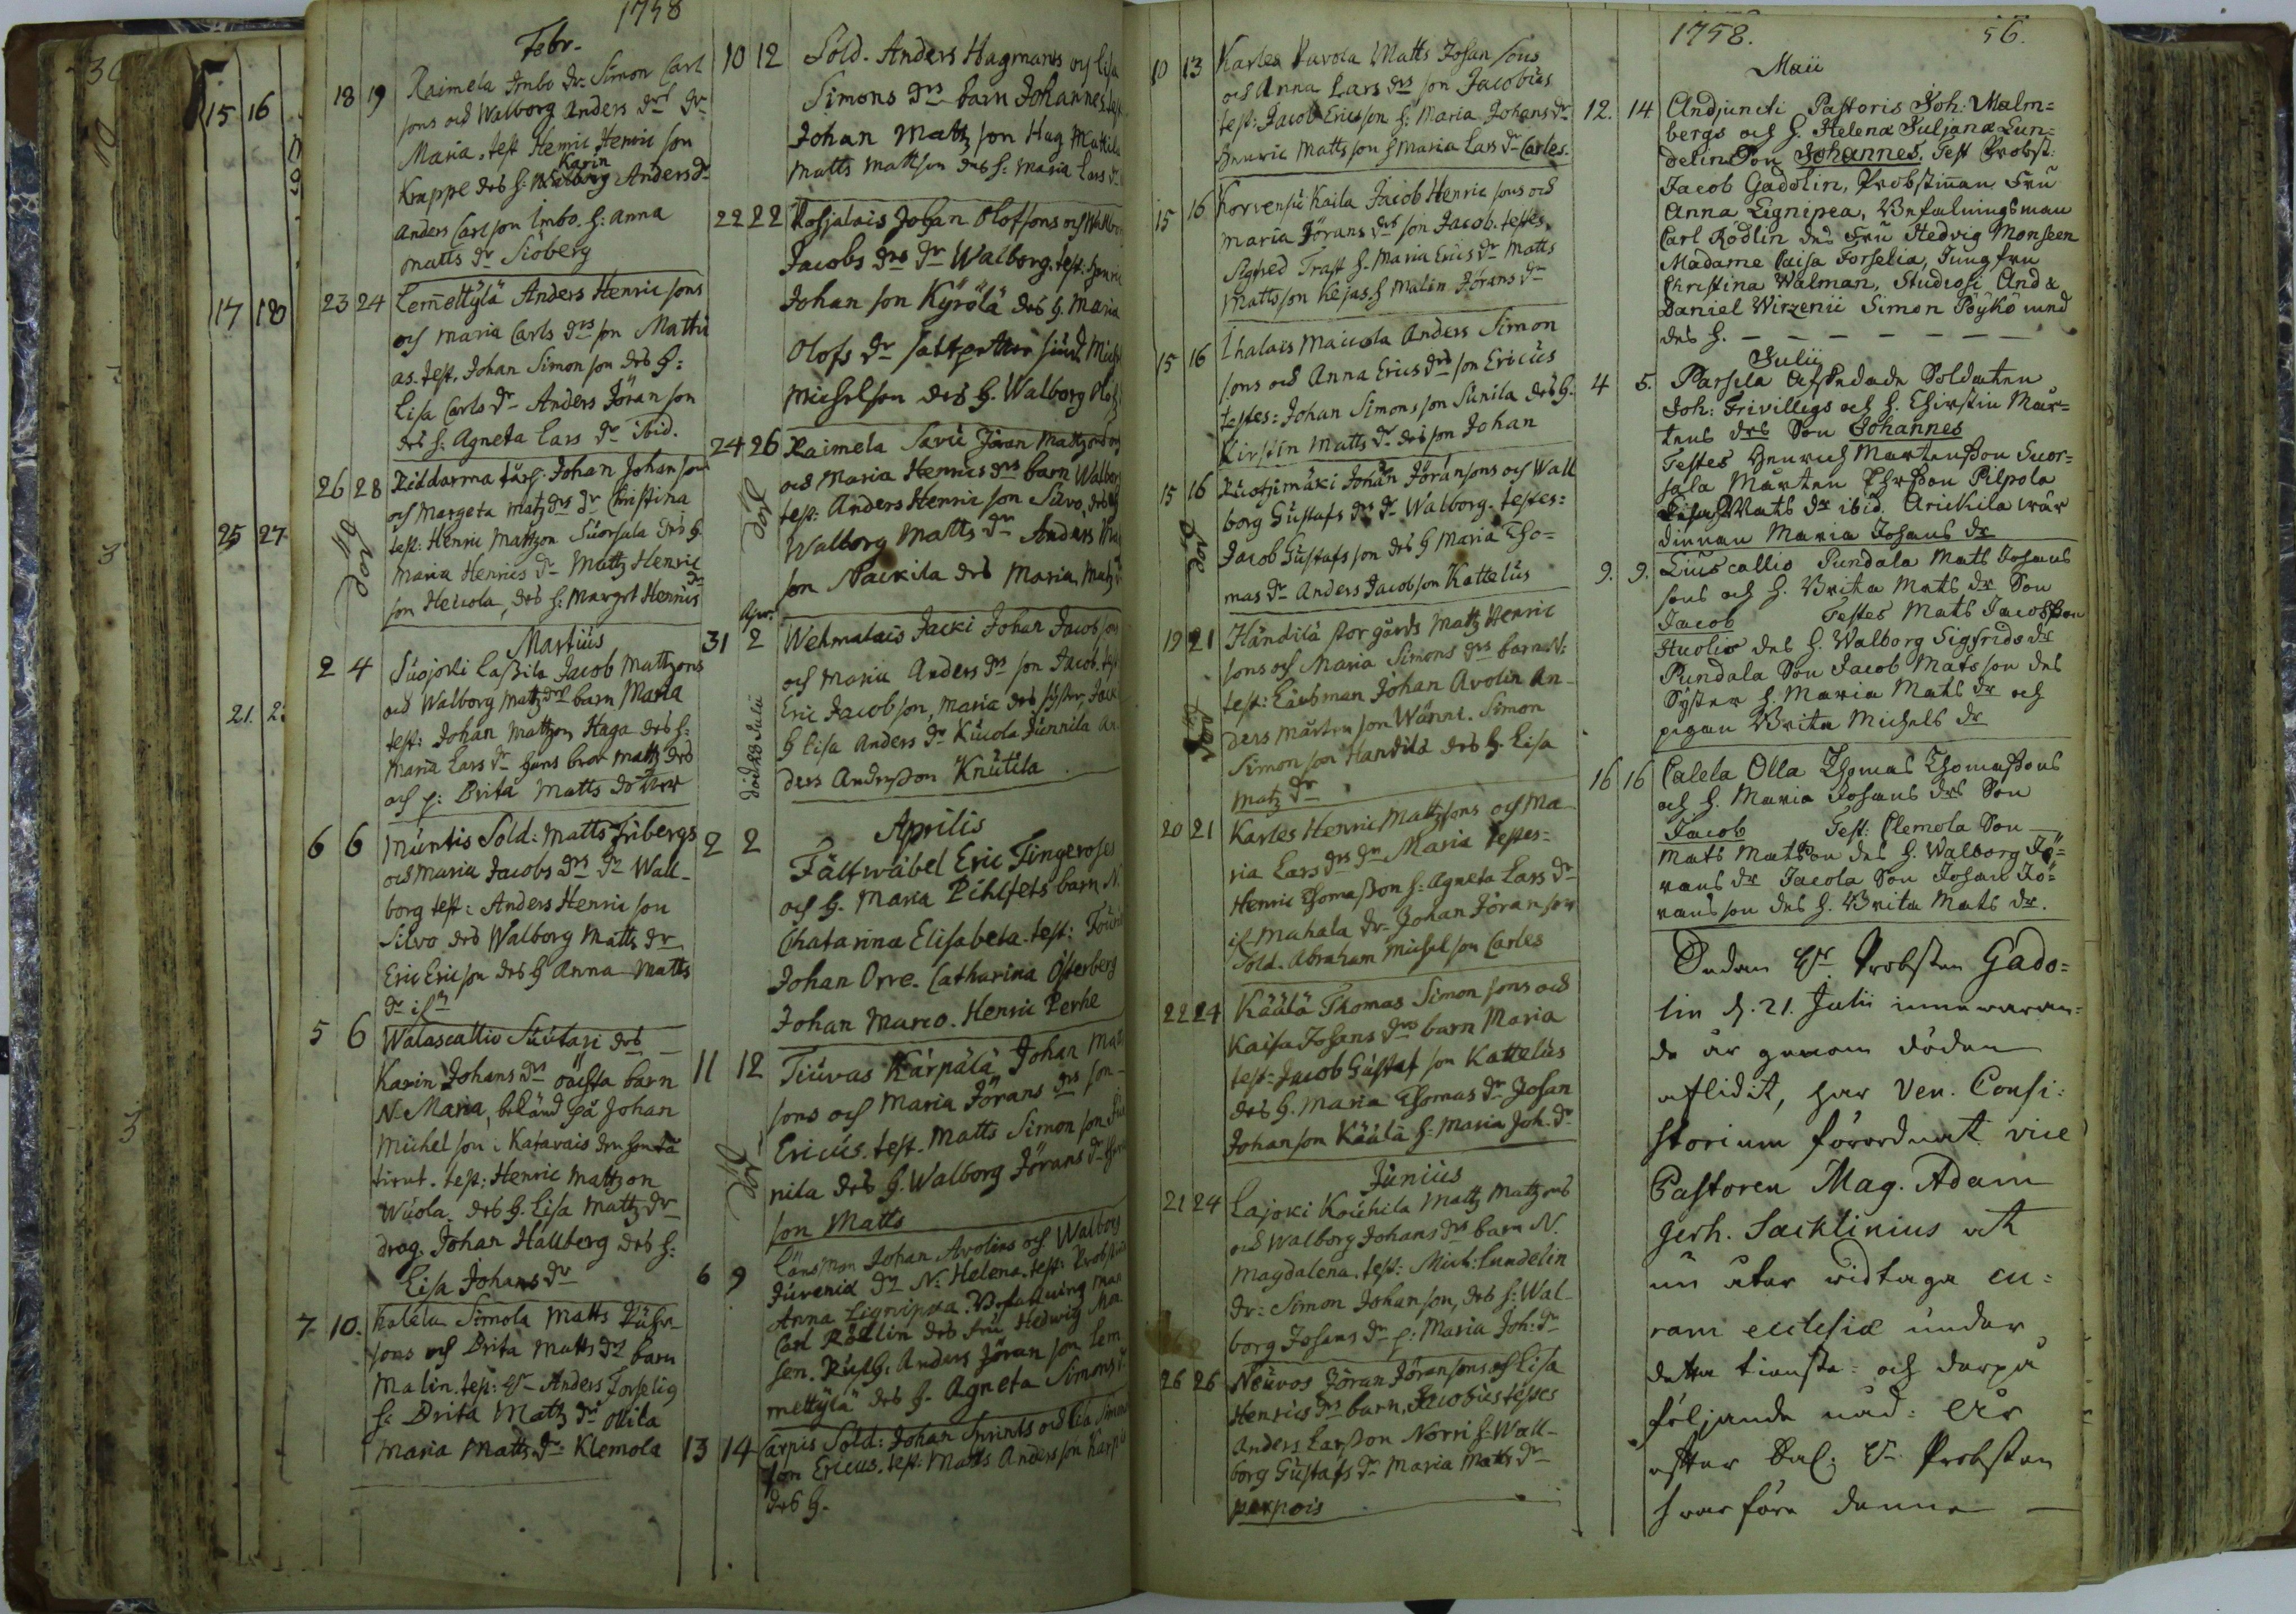 1758
Febr.
18 19 Raimela Imbo Dr. Simon Carl
sons och Walborg Anders drs dr
Maria. test Henric Henric son
Karin
Knappe des h: Walborg Anders dr
Anders Carlson Imbo. h: Anna
Matts dr Siöberg
23 24 Lemettylä Anders Henric sons
och Maria Carls drs son Matthi
as. test. Johan Simon son des h:
Lisa Carls dr Anders Jöran son
des h: Agneta Lars dr ibid.
26 28 Johan Johan sons
och Margeta Matz drs dr Christina
död
test: Henric Mattzon Suorsala des h
Maria Henrics dr Mattz Henric
son Heicola, des h: Margrt Henrics
dr
Martius
2 4 Suojoki Lassila Jacob Mattzons
och Walborg Matz drs barn Maria
test: Johan Mattzon Haga des h:
Maria Lars dr hans bror Mattz des
och p: Brita Matts dotter
6 6 Muntis Sold: Matts Fribergs
och Maria Jacobs drs dr Wall-
borg test: Anders Henric son
Silvo des Walborg Matts dr
Eric Ericson des h Anna Matts
dr
5 6 Walascallio Suutari des
Karin Johans dr oächta barn
N. Maria, på Johan
Michel son i
test: Henric Mattzon
Wuola. des h. Lisa Mattz dr
drag. Johan Hallberg des h:
Lisa Johans dr
7. 10. Kalela Simola Matts
sons och Brita Matts drs barn
Malin. test: Anders Forselig
h: Brita Matz dr Ollila
Maria Matts dr Klemola
10 12 Sold. Anders Hagmans och Lisa
Simons drs barn Johannes, test
Johan Mattz son Hag Mattila
Matts Mattson des h: Maria Lars dr
22 22 Kosjalais Johan Olofsons och Walborg
Jacobs drs dr Walborg. test: Henric
Johan son Kyrölä des h. Maria
Olofs dr
Michelson des h. Walborg
24 26 Raimela Savu Jöran Mattzsons
och Maria Henrics drs barn Walborg
död
test: Anders Henric son Silvo, des h
Walborg Matts dr Anders
son Nackila des Maria Matz
Apr.
31 2 Wehmalais Jacki Johan Jacob sons
och Maria Anders drs son Jacob. test
Eric Jacobson, Maria des syster, Jack
h Lisa Anders dr Kuola Junnila An
ders Andersson Knutila
död 28 Julii
Aprilis
2 2 Fältwäbel Eric Tingeroses
och h. Maria Pihlfelts barn N.
Chatarina Elisabeta. test:
Johan Orre. Catharina Österberg
Johan Marco. Henric Perhe
11 12 Tiuvas Kärpälä Johan
sons och Maria Jörans drs son
Ericus. test. Matts Simon son
död
nila des h. Walborg Jörans dr
son Matts
6 9 Länsman Johan Avolins och Walborg
Juvenia drs N. Helena. test:
Anna Lignipæa. Befalnings man
Carl Rödlin des fru Hedwig Mon
sen. Anders Jöran son Lem
mettylä des h. Agneta Simons
13 14 Carpis Sold: Johan Sprints och Lisa Simons
son Ericus. test: Matts Andersson Karpis
des h.
10 13 Karles Pavola Matts Johan sons
och Anna Lars drs son Jacobus
test: Jacob Ericson h: Maria Johans dr
Henric Mattsson h Maria Lars dr Carles.
15 16 Korvensu Kaila Jacob Henric sons och
Maria Jörans drs son Jacob. testes.
Sigfred Trast h. Maria Erics dr Matts
Mattsson Kejas. h Malin Jörans dr
15 16 Ihalais Maicola Anders Simon
sons och Anna Erics drs son Ericus
testes: Johan Simons son Sunila des h.
Kirstin Matts dr des son Johan
15 16 Johan Jöransons och Wall
borg Gustafs drs dr Walborg. testes:
död
Jacob Gustafs son des h Maria Tho=
mas dr Anders Jacobson Kattelus
19 21 Händilä storgårds Mattz Henric
sons och Maria Simons drs barn N:
test: Länsman Johan Avolin An-
ders Mårten son Wänni. Simon
Simon son Handila des h. Lisa
Matz dr
20 21 Karles Henric Mattzsons och Ma
ria Lars drs dr Maria testes:
Henric Thomasson h: Agneta Lars dr
Mahala dr. Johan Jöran son
Sold. Abraham Michel son Carles
22 24 Käälä Thomas Simon sons och
Kaisa Johans drs barn Maria
test: Jacob Gustaf son Kattelus
des h. Maria Thomas dr Johan
Johanson Käälä h: Maria Joh. dr
Junius
21 24 Lajoki Kouhila Mattz Mattzons
och Walborg Johans drs barn N.
Magdalena. test: Mich: Lundelin
Dr: Simon Johanson, des h: Wal-
borg Johans dr p: Maria Joh: dr
26 26 Neuvos Jöran Jöransons och Lisa
Henrics drs barn. Jacobus testes
Anders Larsson Norri h: Wall-
borg Gustafs dr Maria Matts dr
parpois
1758. 56.
Maii
12. 14 Andjuncti Pastoris Joh: Malm=
bergs och h. Helenæ Julianæ Lun=
delin Son Johannes. Test Probst:
Jacob Gadolin, Probstinnan Fru
Anna Lignipea, Befalningsman
Carl Rödlin des Fru Hedvig Monseen
Madame Caisa Forselia, Jungfru
Christina Walman, Studiosi And &
Daniel Wirzenii Simon Pöykö
des h. — — — — — — —
Julii
4 5. Parsila Afskedade Soldaten
Joh: Frivilligs och h. Chirstin Mår=
tens drs Son Johannes
Testes Henrich Mårtensson Suor=
sala Mårten Pilpola
Mats dr ibid. Arickila
Maria Johans dr
9. 9. Liuscallio Pundala Mats Johans
sons och h. Brita Mats dr Son
Jacob Testes Mats Jacobsson
Huolio des h. Walborg Sigfrids dr
Pundala Son Jacob Matsson des
Syster h. Maria Mats dr och
pigan Brita Michels dr
16 16 Calela Olla Thomas Thomassons
och h. Maria Johans drs Son
Jacob Test: Clemola Son
Mats Matsson des h. Walborg Jö=
rans dr Jacola Son Johan Jö=
ransson des h. Brita Mats dr.
Sedan Hr Probsten Gado=
lin d. 21. Julii innewaran=
de år genom döden
aflidit, har Ven. Consi:
storium förordnat vice
Pastoren Mag. Adam
Gerh. Sacklinius at
nu atar widtaga cu=
ram ecclesiæ under
detta tienste= och derpå
följande nåd= åhr
efter Sal. Hr Probsten
hvarföre denne —